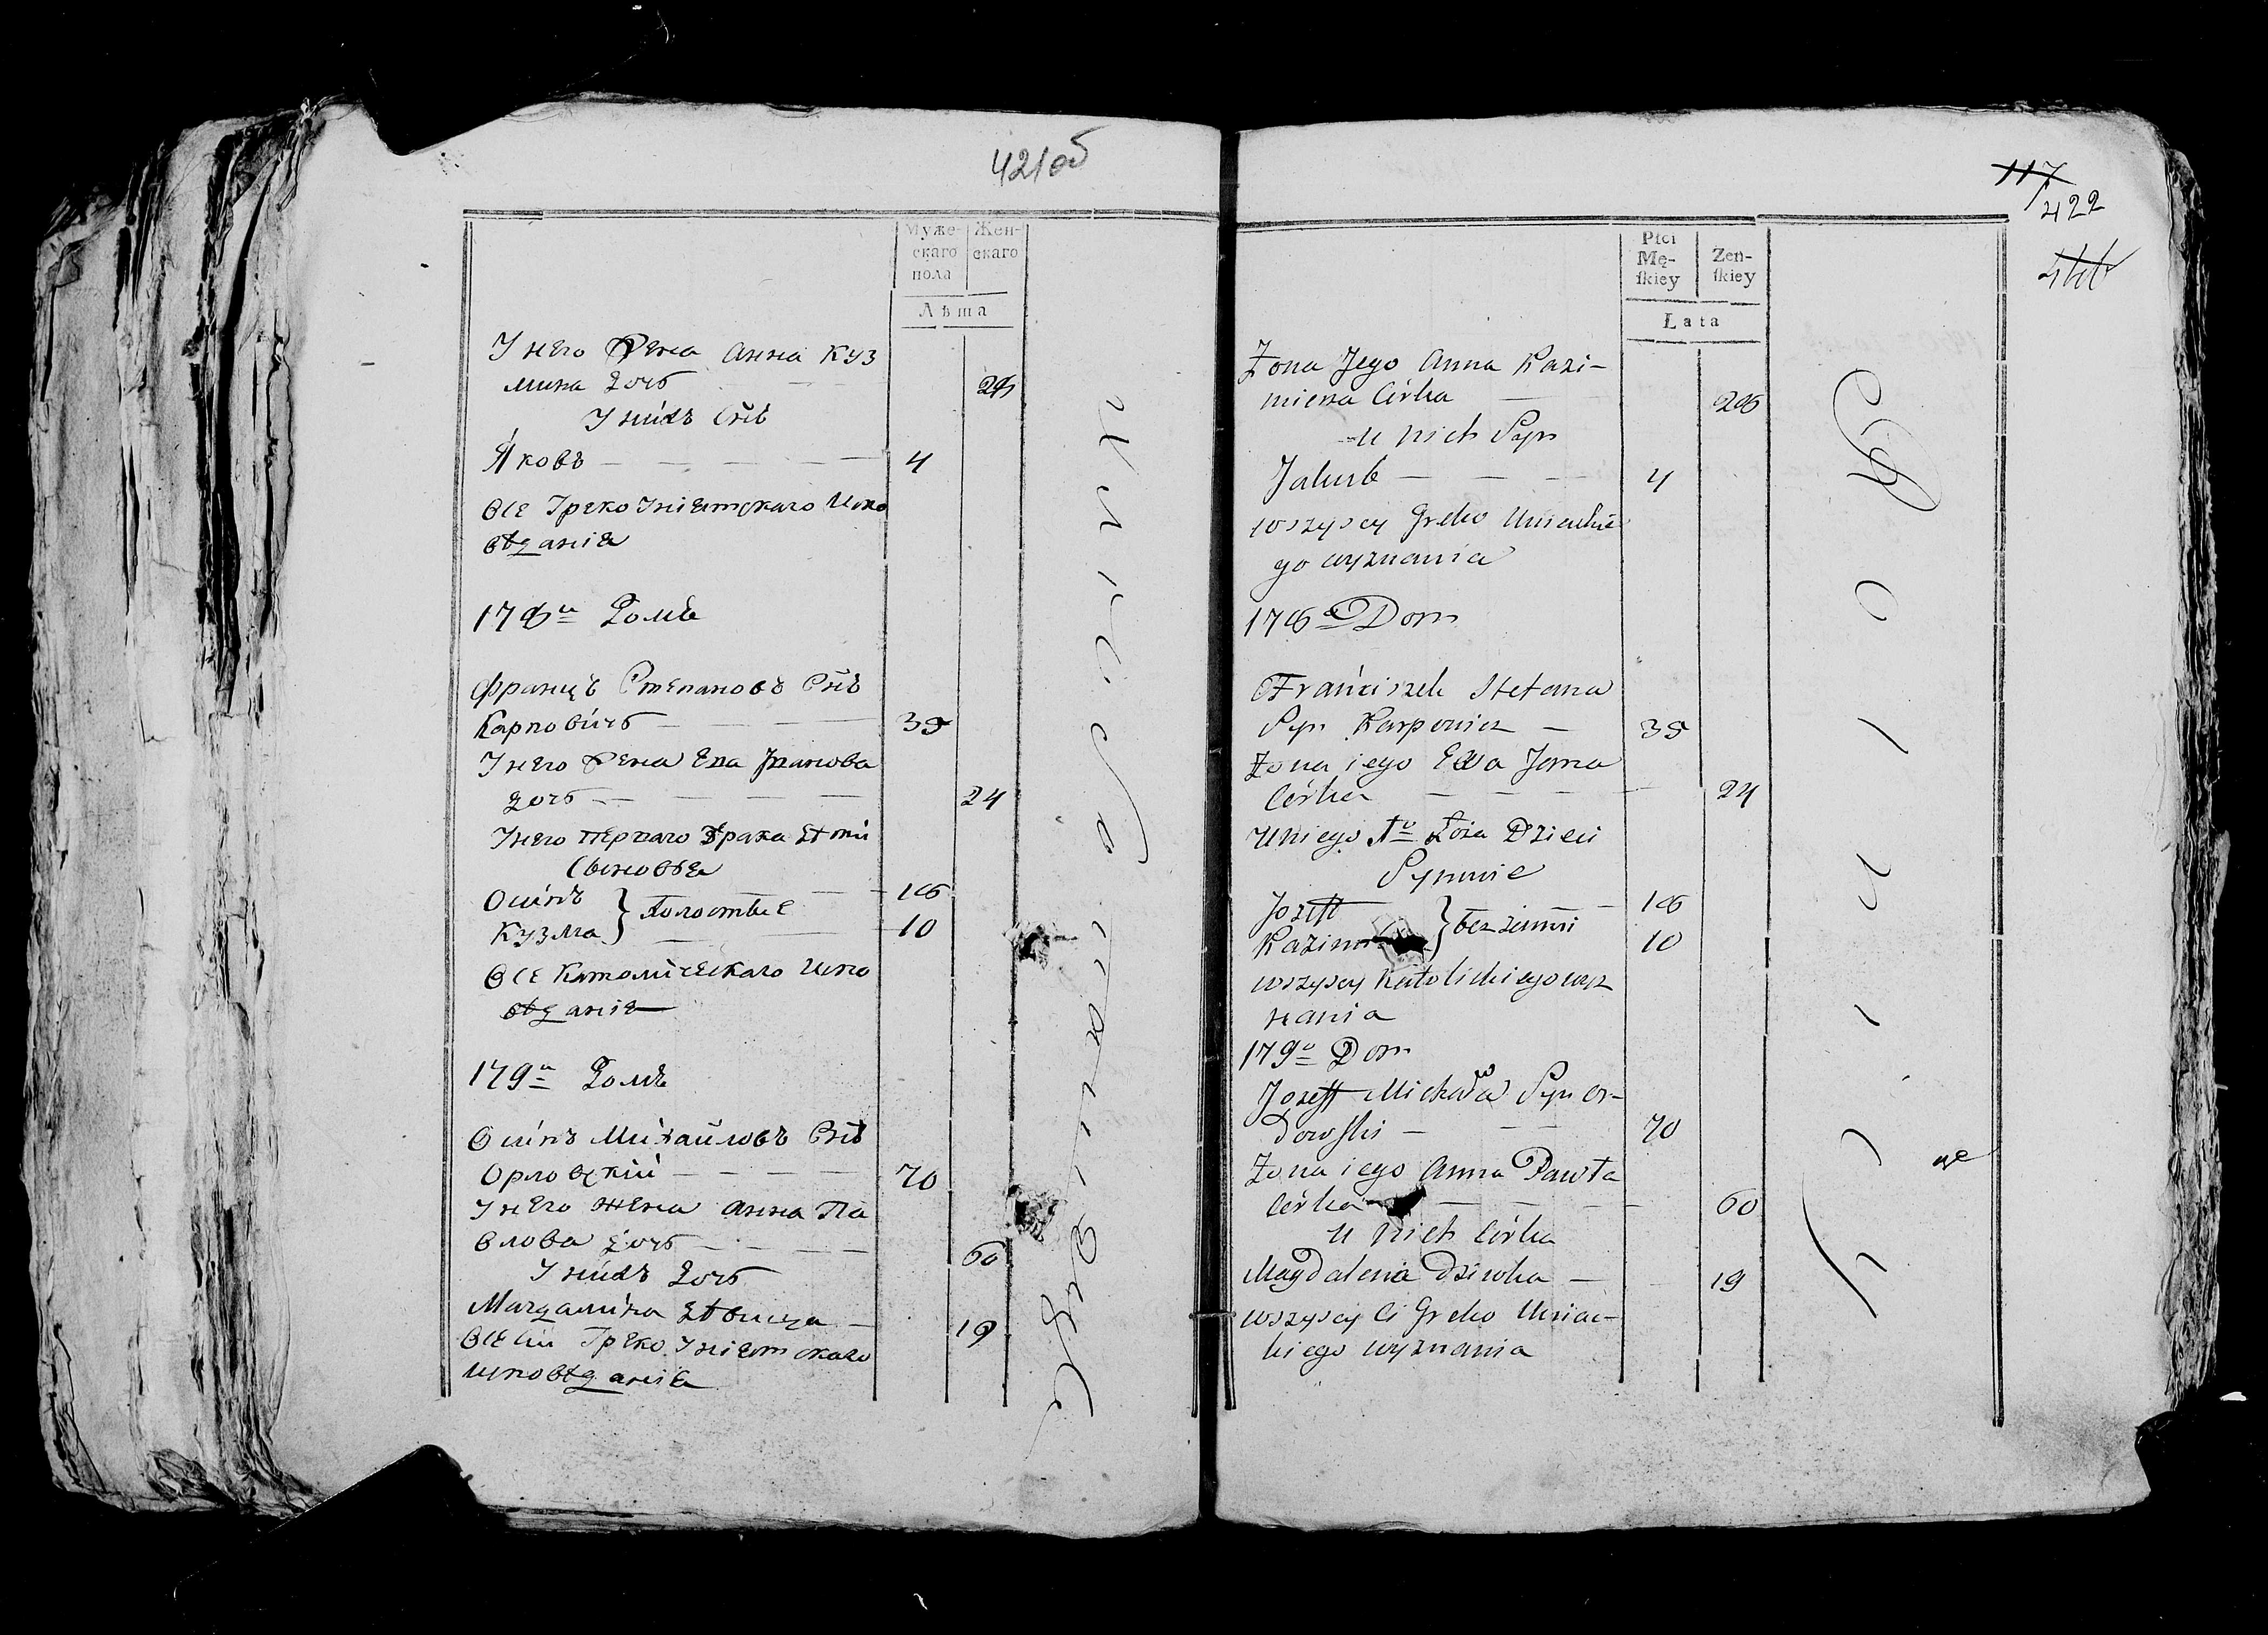 421об
Муже-
скаго
пола
Жен-
скаго
Лѣта
У него Жена Анна Куз
мина дочь 26
У нихъ Снъ
Яковъ 4
Все Греко Униятскаго Испо
вѣдания
178й Домъ
Францъ Степановъ Снъ
Карповичь 35
У него Жена Ева Иванова
дочь 24
У него перваго брака дѣти
Сыновья
Осипъ 16
Кузма } холостые 10
Все Католическаго Испо
вѣдания
179й Домъ
Осипъ Михайловъ Снъ
Орловский 70
У него Жена Анна Па
влова дочь 60
У нихъ дочь
Магдалина дѣвица 19
Все сии Греко Униятскаго
исповѣдания
117
422
Płci
Mę-
skiey
Żeń-
skiey
Lata
Żona Jego Anna Kazi-
mierza Córka 26
u nich Syn
Jakub 4
wszyscy Greko Unickie
go wyznania
178o Dom
Franciszek Stefana
Syn Karpowicz 35
Żona iego Ewa Jana
Córka 24
u niego 1o Łoża Dzieci
Synowie
Jozeff 16
} bezżenni 10
wszyscy Katolickiego wyz
nania
179o Dom
Jozeff Michała Syn Or-
łowski 70
Żona iego Anna Pawła
Córka 60
u nich Córka
Magdalena Dziewka 19
wszyscy Ci Greko Uniac-
kiego wyznania